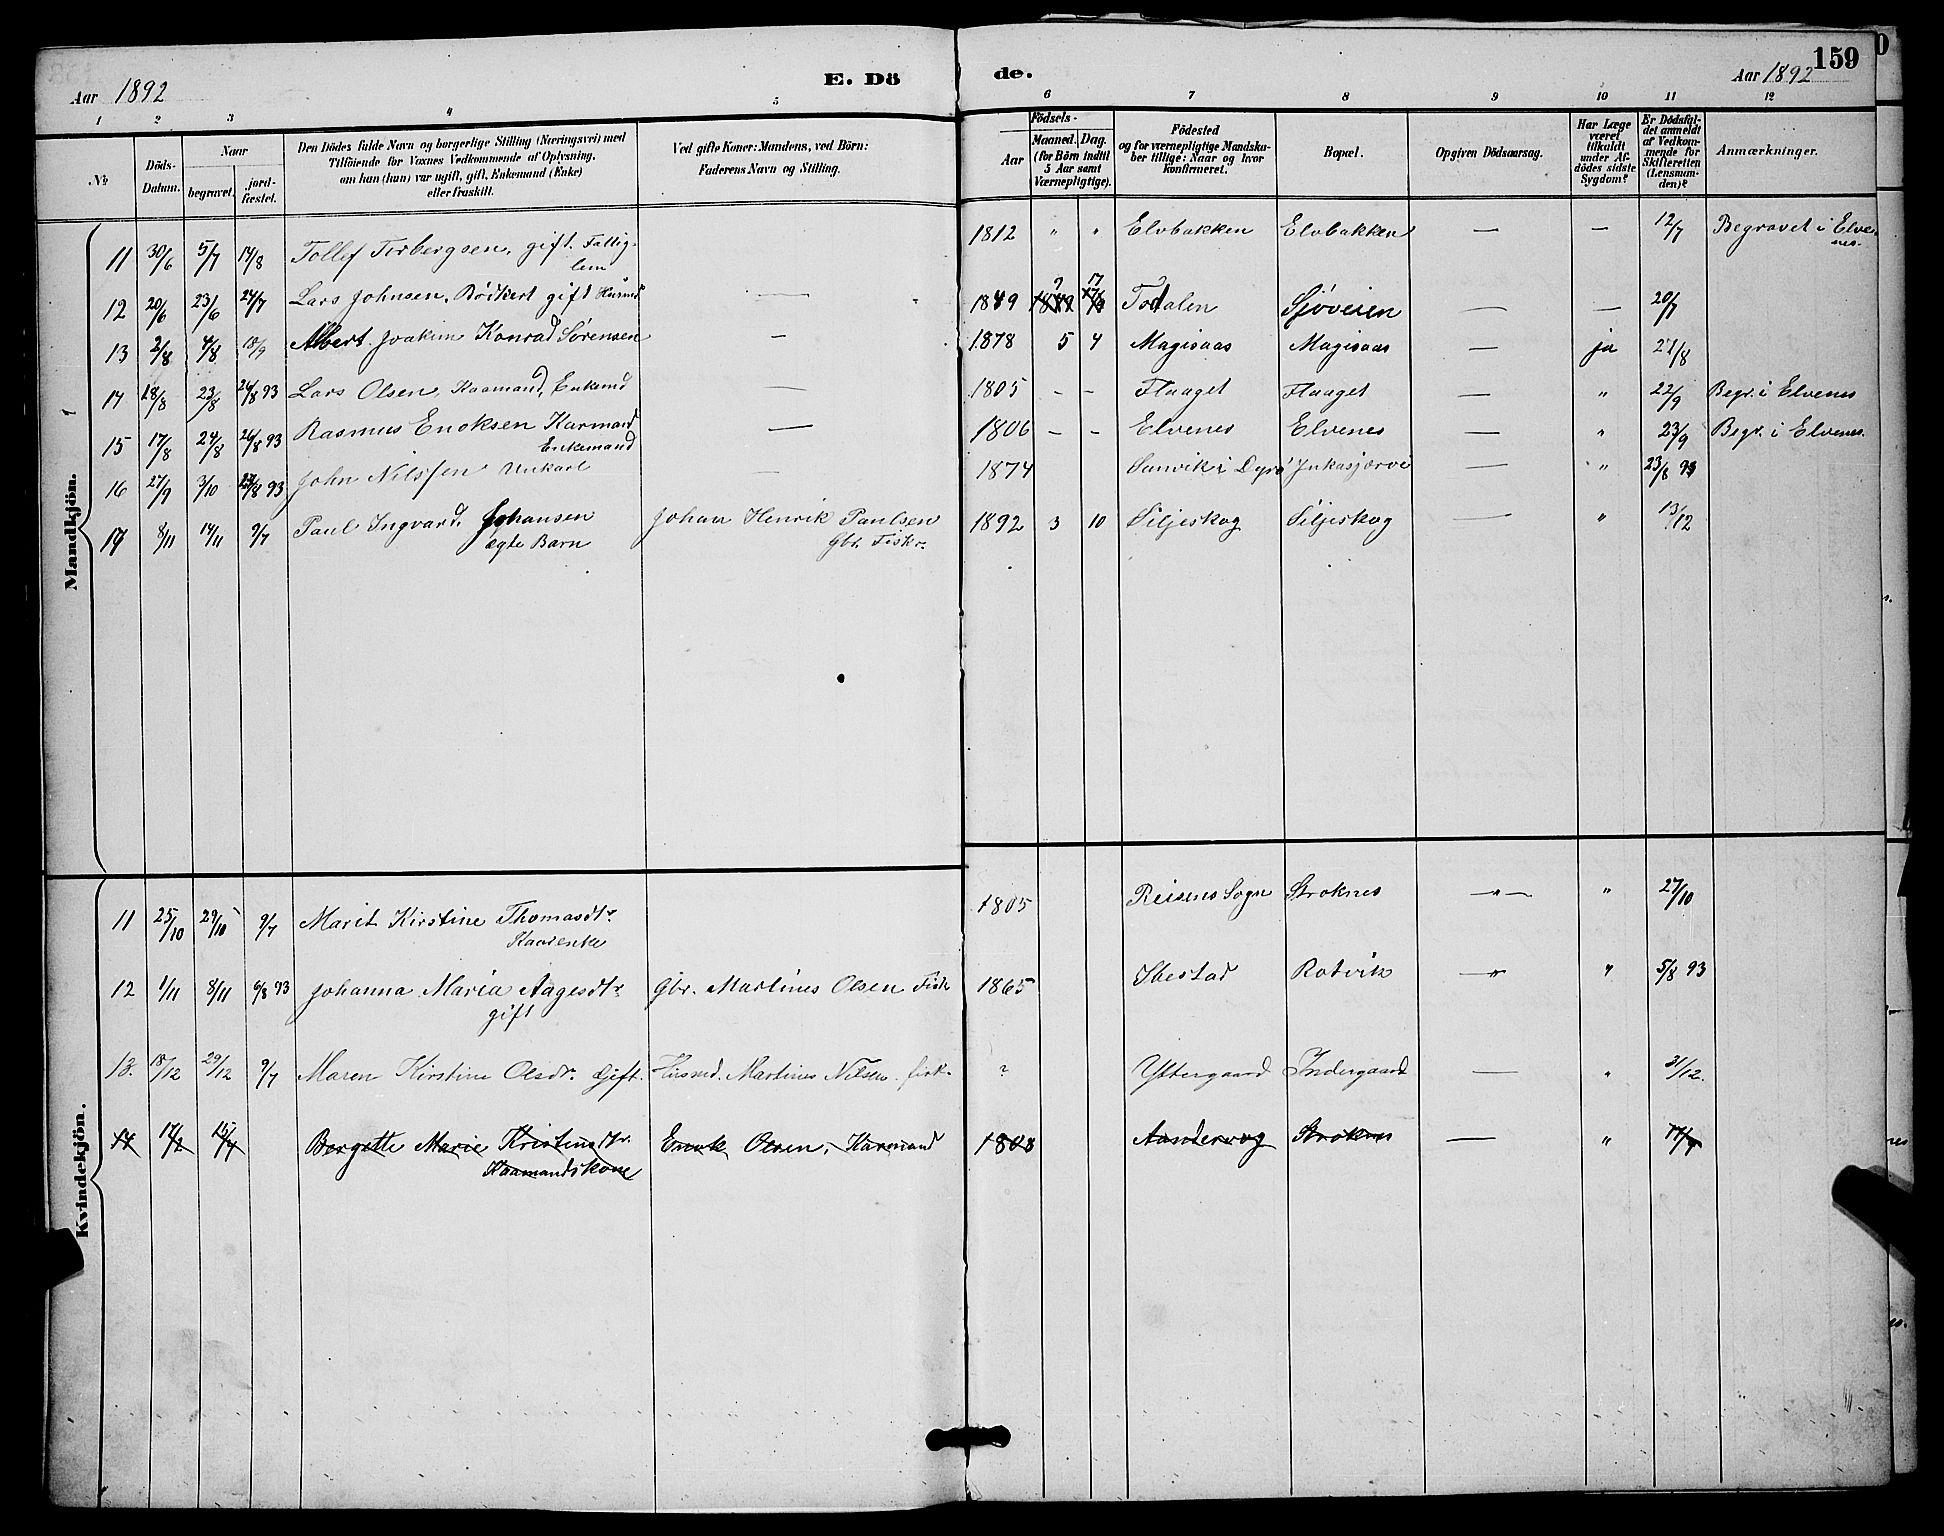 159
Aar 1892 E. Dö de. Aar 1892
1 2 3 4 5 6 7 8 9 10 11 12
№
Döds-Datum.
Naar
begravet.
jord-fæstet.
Den Dödes fulde Navn og borgerlige Stilling (Næringsvei) med
Tilföiende for Voxnes Vedkommende af Oplysning,
om han (hun) var ugift, gift, Enkemand (Enke)
eller fraskilt.
Ved gifte Koner: Mandens, ved Börn:
Faderens Navn og Stilling.
Födsels-
Aar
Maaned. Dag.
(for Börn indtil
5 Aar samt
Værnepligtige).
Födested
og for værnepligtige Mandska-
ber tillige: Naar og hvor
konfirmeret.
Bopæl.
Opgiven Dödsaarsag.
Har Læge
været
tilkaldt
under Af-
dödes sidste
Sygdom?
Er Dödsfal-
det anmeldt
af Vedkom-
mende for
Skifteretten
(Lensman-
den)?
Anmærkninger.
Mandkjön.
11 30/6 5/7 14/8 Tollef Torbergsen, gift. Fattig- 1812 " " Elvbakken Elvbakken — — 12/7 Begravet i Elve-
lem nes.
12 20/6 23/6 24/7 Lars Johnsen, Bödkert gift Husmd — 1849 Todalen Sjöveien — — 20/7
13 2/8 4/8 18/9 Albert Joakim Konrad Sørensen — 1878 5 4 Magisaas Magisaas — ja 27/8
14 18/8 23/8 26/8 93 Lars Olsen, Kaamand, Enkemd — 1805 - - Flaaget Flaaget — " 22/9 Begr. i Elvenes
15 17/8 24/8 26/8 93 Rasmus Enoksen Karmand — 1806 - - Elvenes Elvenes — " 23/9 Begr. i Elvenes.
Enkemand
16 27/9 3/10 23/8 93 John Nilssen Unkarl — 1874 Sanvik i Dyrö Jukasjærvi — " 23/8 93
17 8/11 14/11 9/7 Paul Ingvard Johansen Johan Henrik Paulsen 1892 3 10 Siljeskog Siljeskog — " 13/12
ægte Barn Gbr. Fiskr.
Kvindekjön.
11 25/10 29/10 9/7 Marit Kirstine Thomasdtr. 1805 Reisens Sogn Stroknes — " — " 27/10
Kaarenke
12 1/11 8/11 6/8 93 Johanna Maria Aagesdtr. Gbr. Martinus Olsen Fisk 1865 Ibestad Rotvik — " 5/8 93
gift
13. 18/12 29/12 9/7 Maren Kirstine Olsdtr. Gift. Husmd. Martinus Nilsen fisk. ? Yttergaard Indergaard — " 31/12.
14 17/2 15/4 Bergette Marie Kristinsdtr. Enok Olsen, Karmand 1808 Aandervog Stroknes — "
Kaamandskone